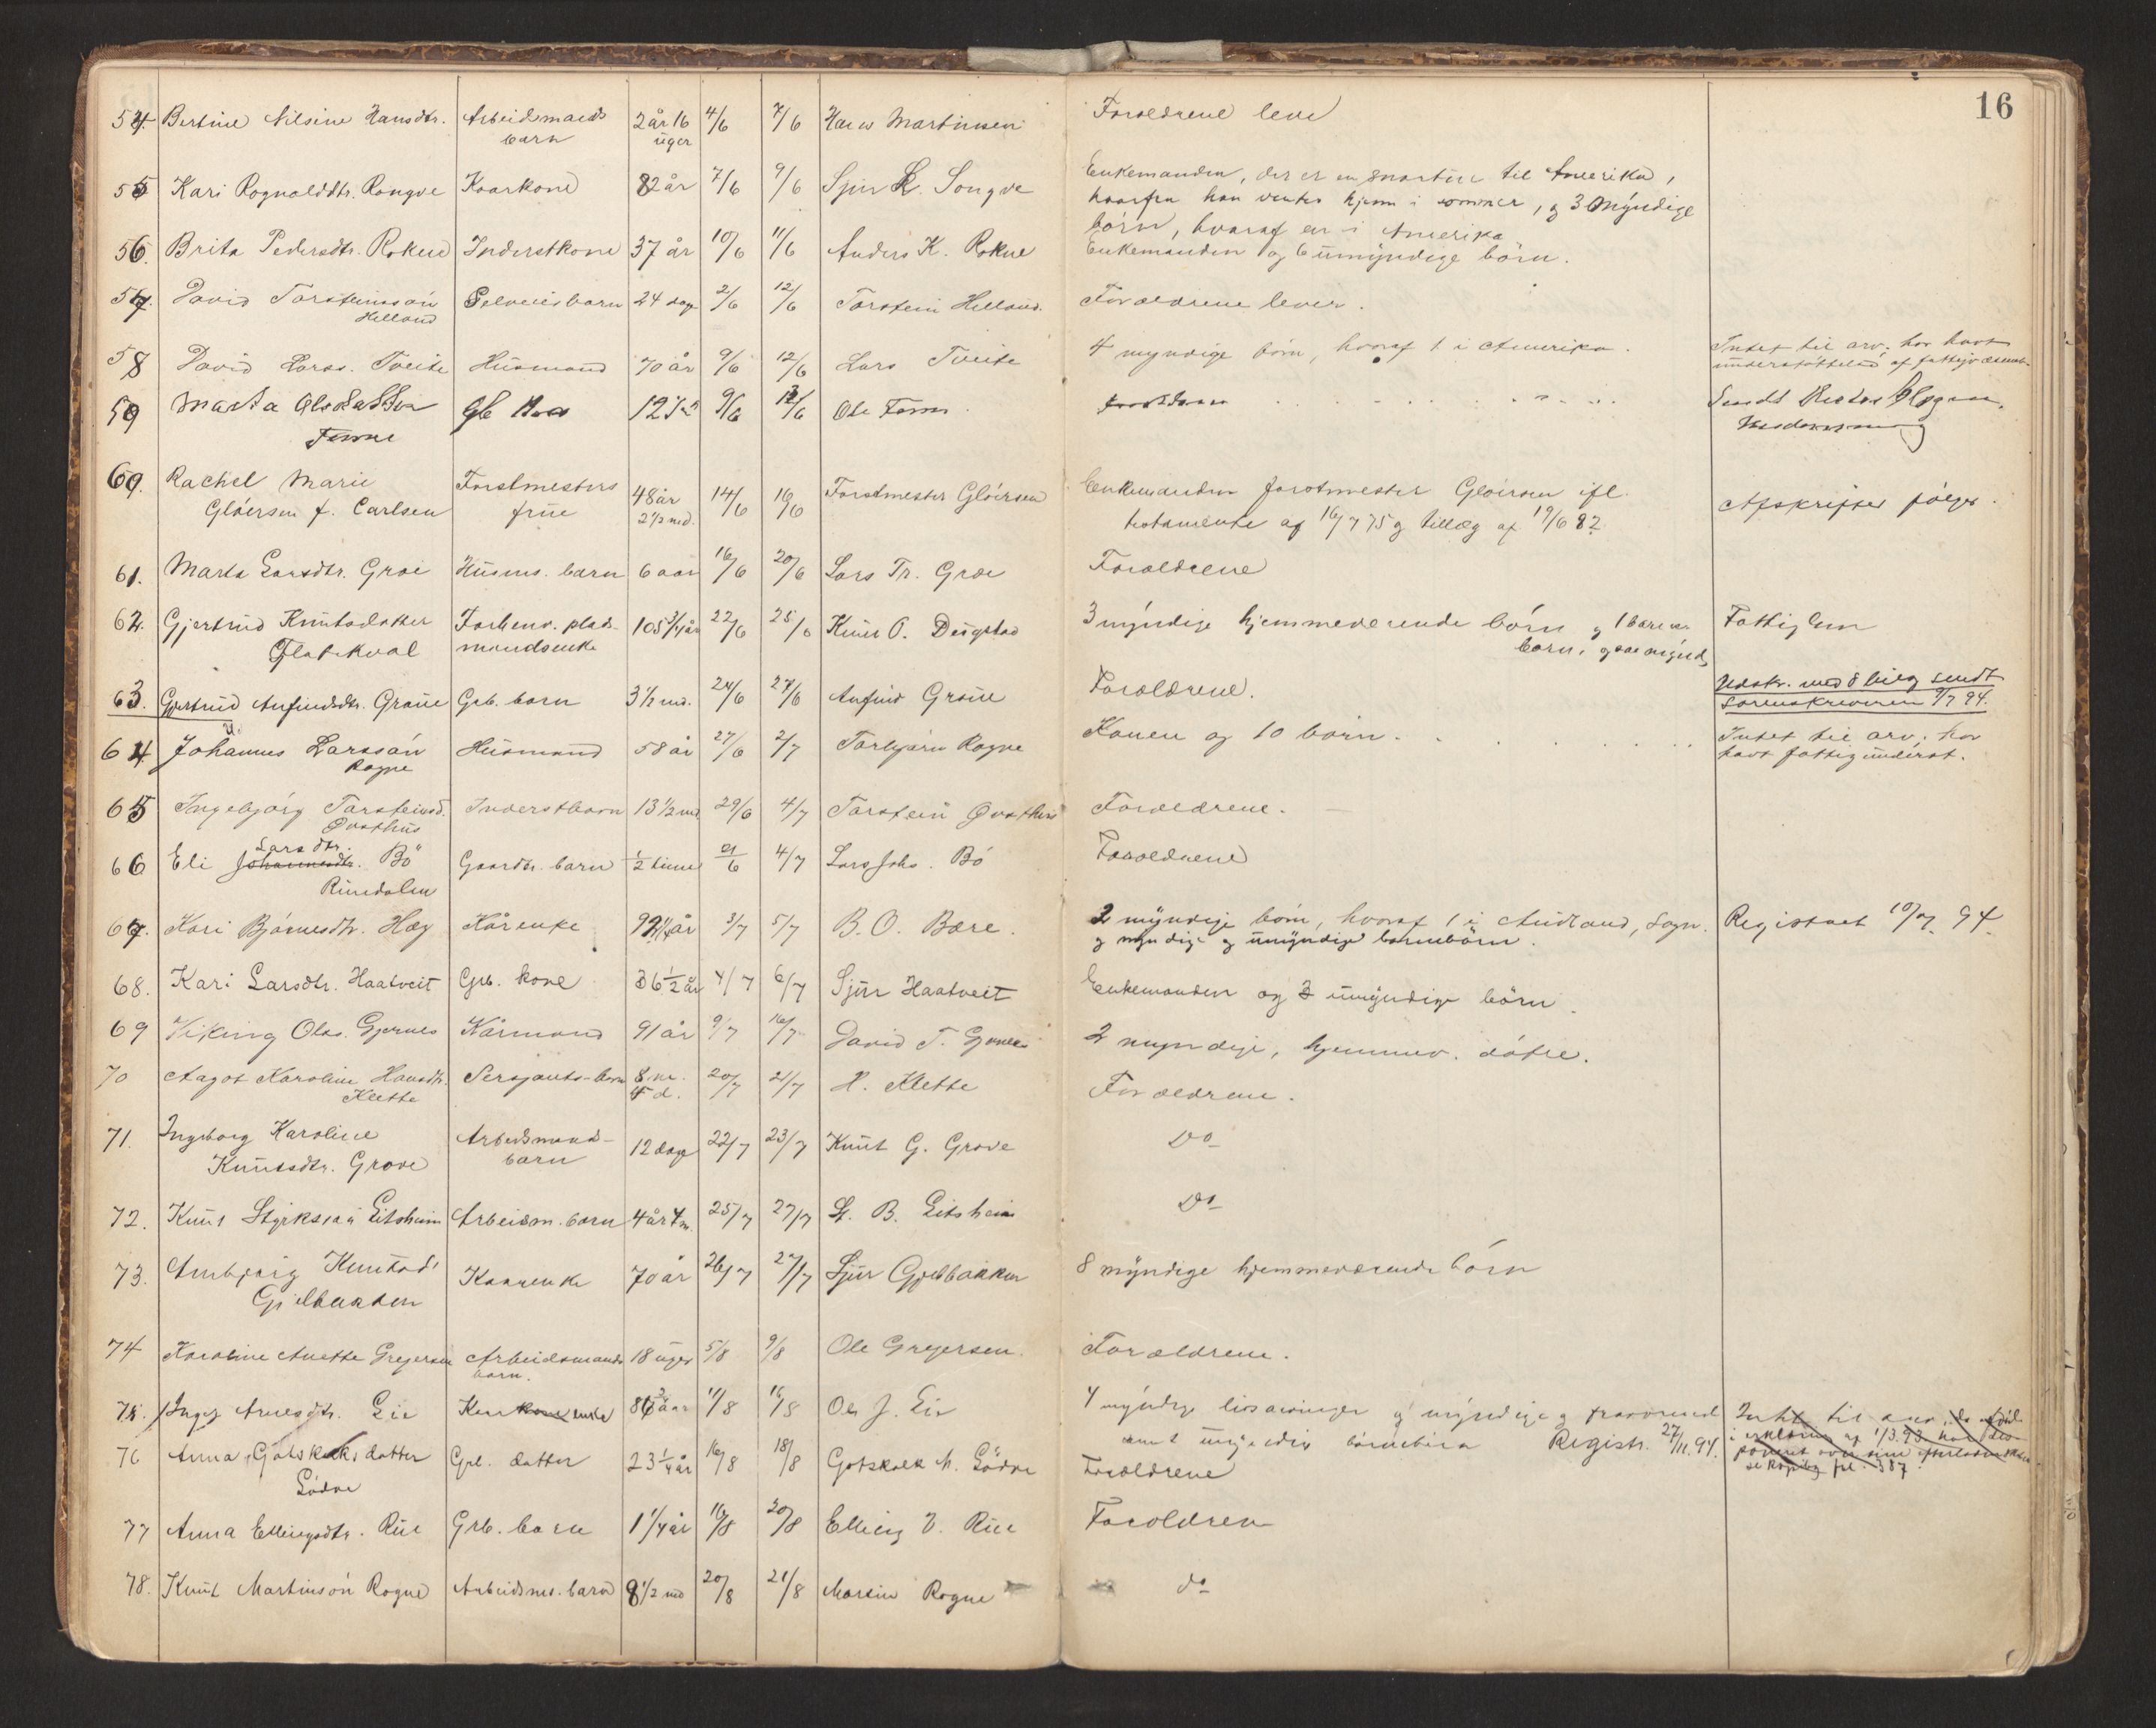 16
54. Bertine Nilsine Hansdtr. Arbeidsmands 2 år 16 4/6 7/6 Hans Martinsen Forældrene lever
barn uger
55 Kari Rognalddtr. Rongve Kaarkone 82 år 7/6 9/6 Sjur Songve Enkemanden, der er en snartur til Amerika,
hvorfra han ventes hjem i sommer, og 3 myndige
børn, hvoraf en i Amerika
56. Brita Pedersdtr. Rokne Inderstkone 37 år 10/6 11/6 Anders K. Rokne Enkemanden og 6 umyndige börn.
57. David Torsteinssön Selveiesbarn 24 dage 2/6 12/6 Torstein Helland. Forældrene lever.
Helland
58 David Larss. Tveite Husmand 70 år 9/6 12/6 Lars Tveite 4 myndige börn, hvoraf 1 i Amerika. Intet til arv; har havt
understøttelse af fattigvæsenet.
59 Marta 9/6 12/6 Ole Sendt
Finne
60. Rachel Marie Forstmesters 48 år 14/6 16/6 Forstmester Glöersen Enkemanden forstmester Glöersen ifl. Afskrifter følger.
Glöersen f. Carlsen frue 2 1/2 md. testamente af 16/7 75 og tillæg af 19/6 82.
61. Marta Larsdtr. Groe Husms. barn 6 aar 16/6 20/6 Lars Tr. Groe Forældrene
62. Gjertrud Knutsdatter Forhenv. plads- 105 3/4 år 22/6 25/6 Knut O. Dugstad 3 myndige hjemmeværende börn og 1 barne- Fattiglem
Flatekval mandsenke barn,
63. Gjertrud Anfindsdtr. Grove Grb. barn 3 1/2 md. 24/6 27/6 Anfind Grove Forældrene. Udskr. med 8 bilag sendt
Sorenskriveren 9/7 94.
64 Johannes Larssön Husmand 58 år 27/6 2/7 Torbjørn Rogne Konen og 10 börn. Intet til arv; har
Rogne havt fattigunderst.
65 Ingebjørg Torsteinsd. Inderstbarn 13 1/2 md 29/6 4/7 Torstein Øvsthus Forældrene.
Øvsthus
Larsdtr.
66 Eli Johannesdtr. Bö Gaardbr. barn 1/2 time 21/6 4/7 Lars Johs. Bö Forældrene
Rundalen
67. Kari Bjørnesdtr. Hæg Kårenke 92 1/4 år 3/7 5/7 B. O. Bære. 2 myndige börn, hvoraf 1 i Aurland, Sogn. Registret 10/7 94.
og myndige og umyndige barnebörn.
68. Kari Larsdtr. Haatveit Grb. kone 36 1/2 år 4/7 6/7 Sjur Haatveit Enkemanden og 3 umyndige börn.
69 Viking Olss. Gjernes Kårmand 91 år 9/7 16/7 David T. Gjernes 2 myndige, hjemmev. døtre.
70 Aagot Karoline Hansdtr. Sersjants-barn 8 m. 20/7 21/7 H. Klette Forældrene.
Klette d.
71. Ingeborg Karoline Arbeidsmands- 12 dage 22/7 23/7 Knut G. Grove Do
Knutsdtr. Grove barn
72. Knut Styrkssön Eitsheim Arbeidsm. barn 4 år 4 m. 25/7 27/7 St. B. Eitsheim Do
73. Ambjørg Knutsd. Kaarenke 70 år 26/7 27/7 Sjur Gjelbakken 8 myndige hjemmeværende börn
Gjelbakken
74 Karoline Anette Gregersen Arbeidsmands 18 uger 5/8 9/8 Ole Gregersen. Forældrene.
barn.
75. Inger Arnesdtr. Lie Kaar kone enke 86 3/4 aar 11/8 16/8 Ole J. Lie 4 myndige livsarvinger og myndige og fraværende Intet til arv, da afdøde
samt umyndige börnebörn Registr. 27/11.94. i erklæring af 1/3.93 har
poneret over sine efterladenskaber
se kopibog pl. 387.
76 Anna Gotskalksdatter Grb. datter 23 1/4 år 16/8 18/8 Gotskalk N. Lödve Forældrene
Lödve
77 Anna Ellingsdtr. Rue Grb. barn 1 1/4 år 16/8 20/8 Elling V. Rue Forældren
78. Knut Martinsön Rogne Arbeidsms. barn 8 1/2 md 20/8 21/8 Martin Rogne do